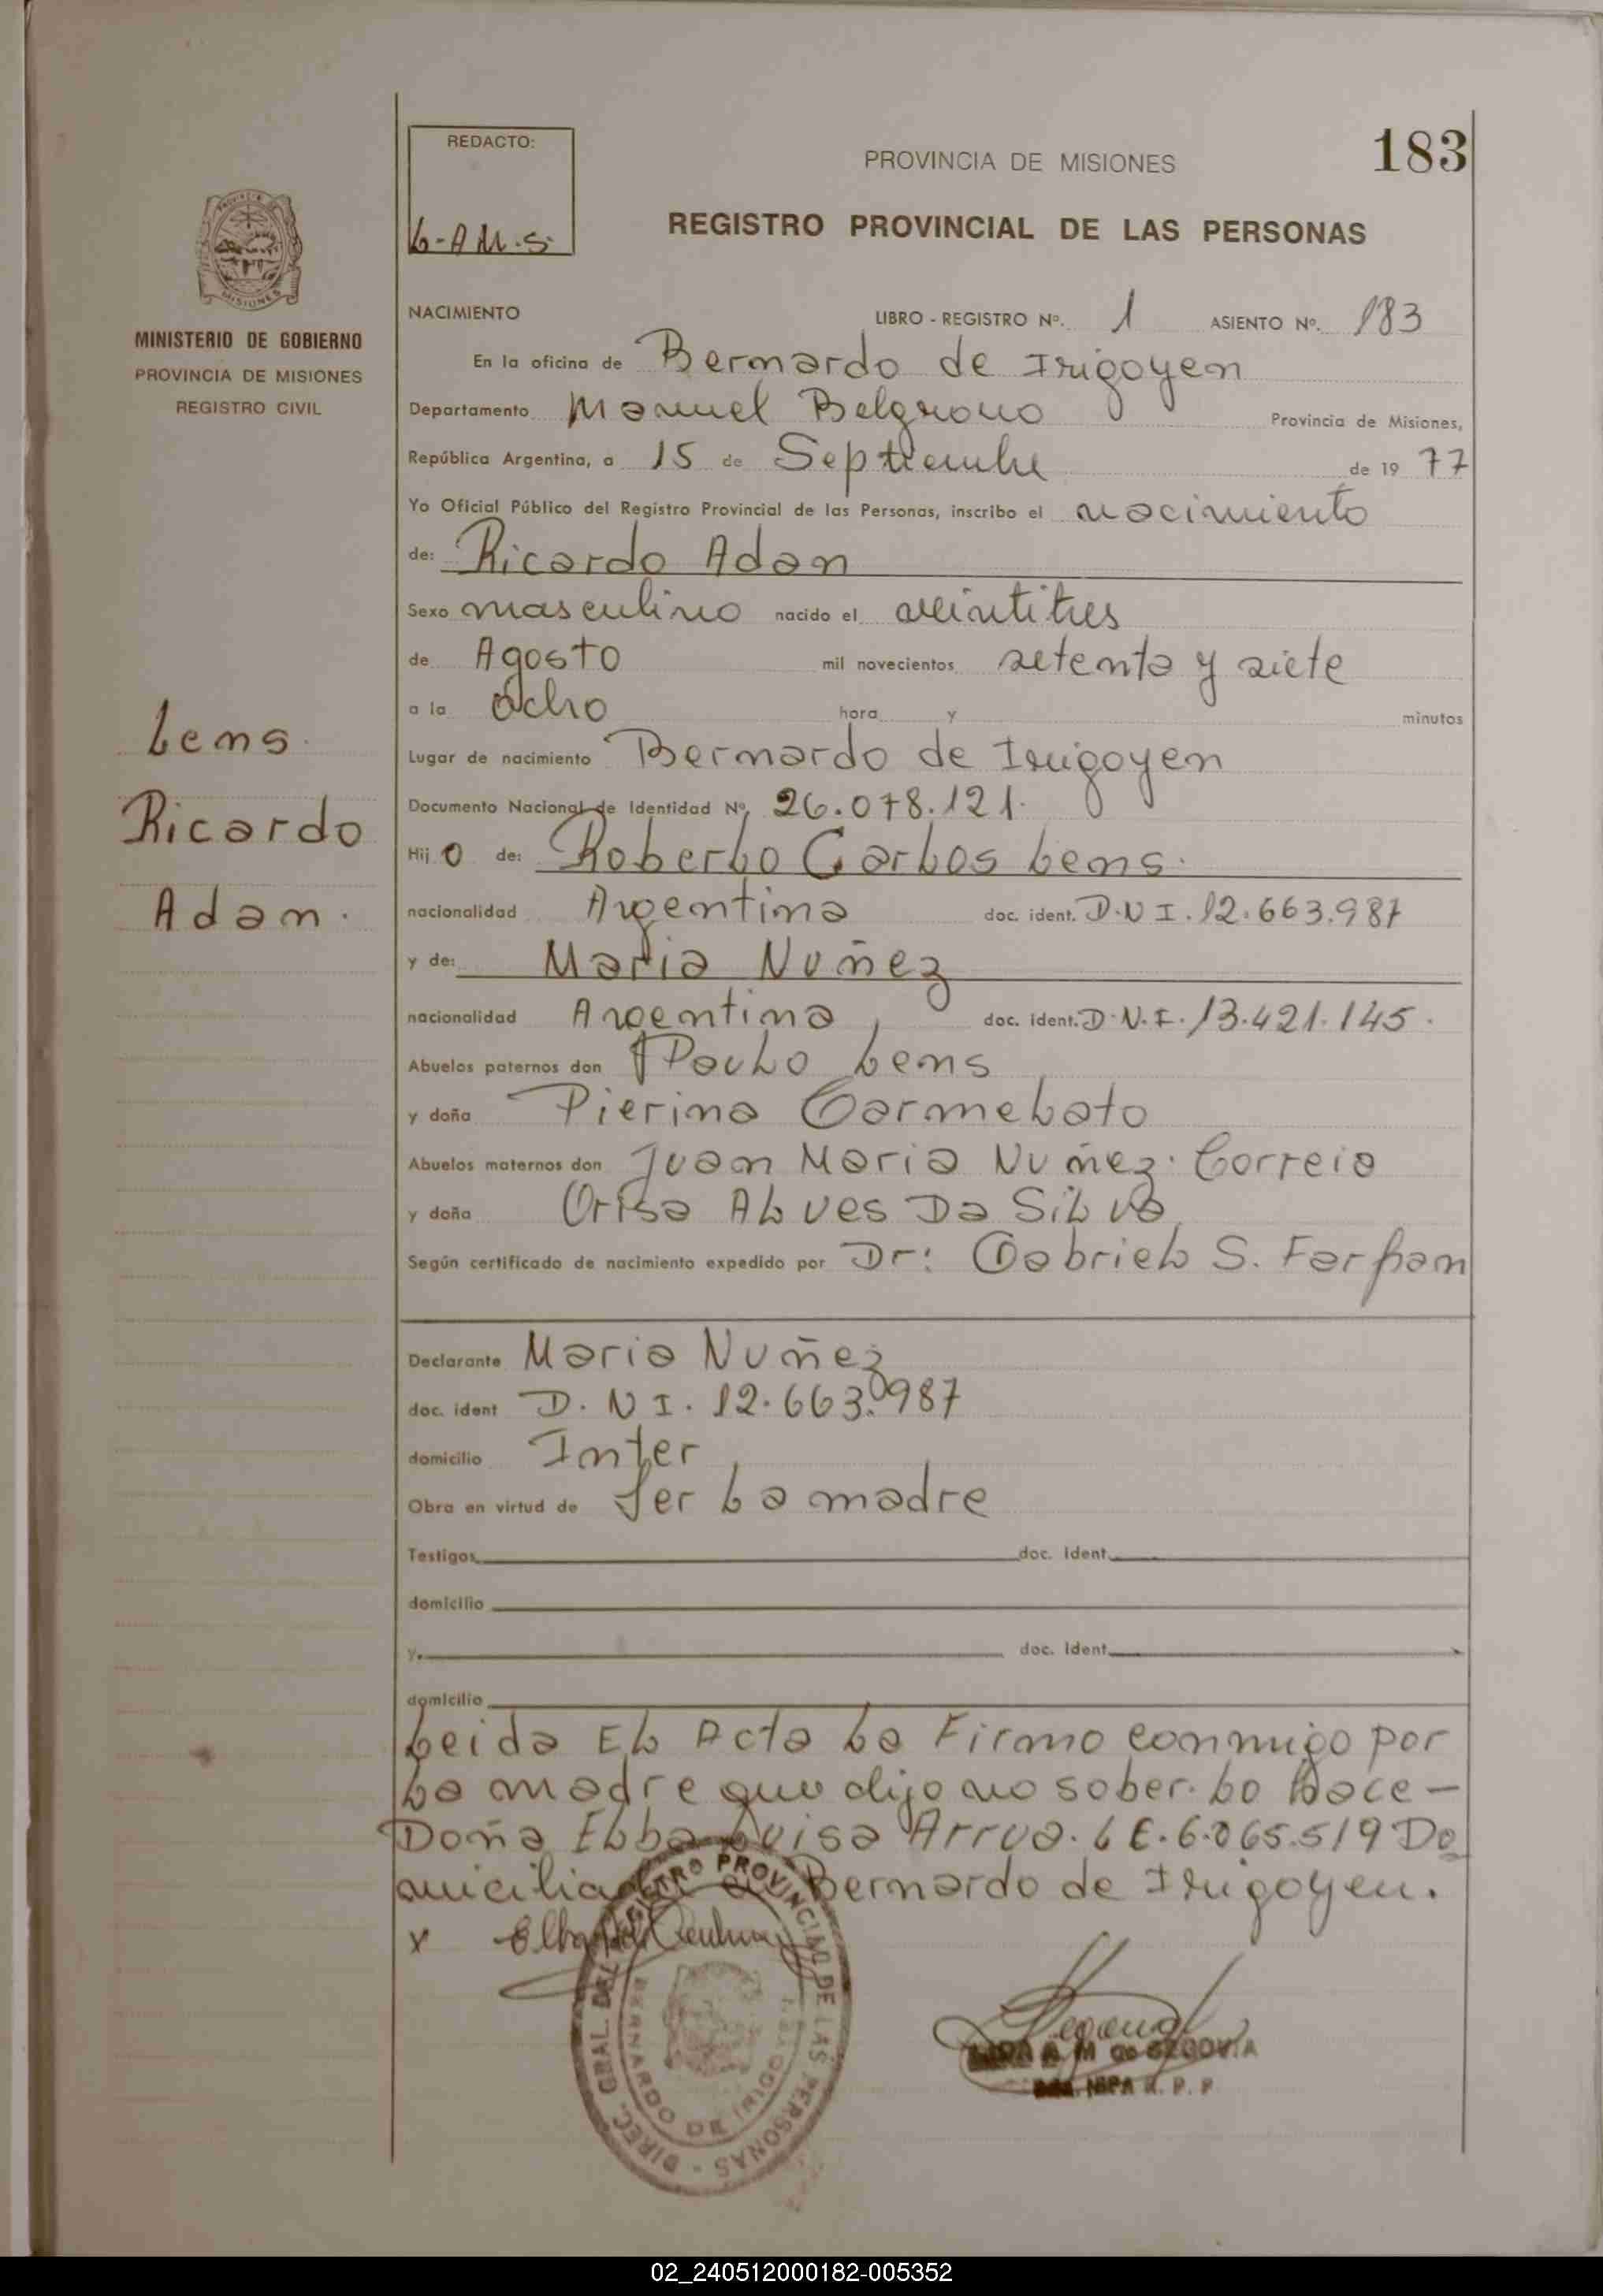 REDACTO:
L-A M.S.
PROVINCIA DE MISIONES
183
REGISTRO PROVINCIAL DE LAS PERSONAS
MISIONES
MINISTERIO DE GOBIERNO
PROVINCIA DE MISIONES
REGISTRO CIVIL
Lens.
Ricardo
Adan.
NACIMIENTO LIBRO - REGISTRO Nº. 1 ASIENTO Nº. 183
En la oficina de Bernardo de Irigoyen
Departamento Manuel Belgrano Provincia de Misiones,
República Argentina, a 15 de Septiembre de 19 77
Yo Oficial Público del Registro Provincial de las Personas, inscribo el nacimiento
de: Ricardo Adan
Sexo masculino nacido el veintitres
de Agosto mil novecientos setenta y siete
a la ocho hora y minutos
Lugar de nacimiento Bernardo de Irigoyen
Documento Nacional de Identidad Nº, 26.078.121.
Hij o de: Roberto Carlos Lens.
nacionalidad Argentina doc. ident. D.N I. 12.663.987
y de: Maria Nuñez
nacionalidad Argentina, doc. ident. D.N.I. 13.421.145.
Abuelos paternos don Paulo Lens
y doña Pierina Carmelato
Abuelos maternos don Juan Maria Nuñez. Correia
y doña Orisa Alves Da Silva
Según certificado de nacimiento expedido por Dr: Gabriel S. Farfan
Declarante Maria Nuñez
doc. ident D. N I. 12.663.987
domicilio Inter
Obra en virtud de Ser La madre
Testigos doc. ident.
domicilio
y. doc. ident.
domicilio
Leida El Acta La Firmo conmigo por
La madre que dijo no saber. Lo Hace -
Doña Elba Luisa Arrua. L E. 6.065.519 Do
miciliada en Bernardo de Irigoyen.
x
DIREC. GRAL. DEL REGISTRO PROVINCIAL DE LAS PERSONAS -
BERNARDO DE IRIGOYEN
A M de SEGOVIA
R. P. P
02_240512000182-005352